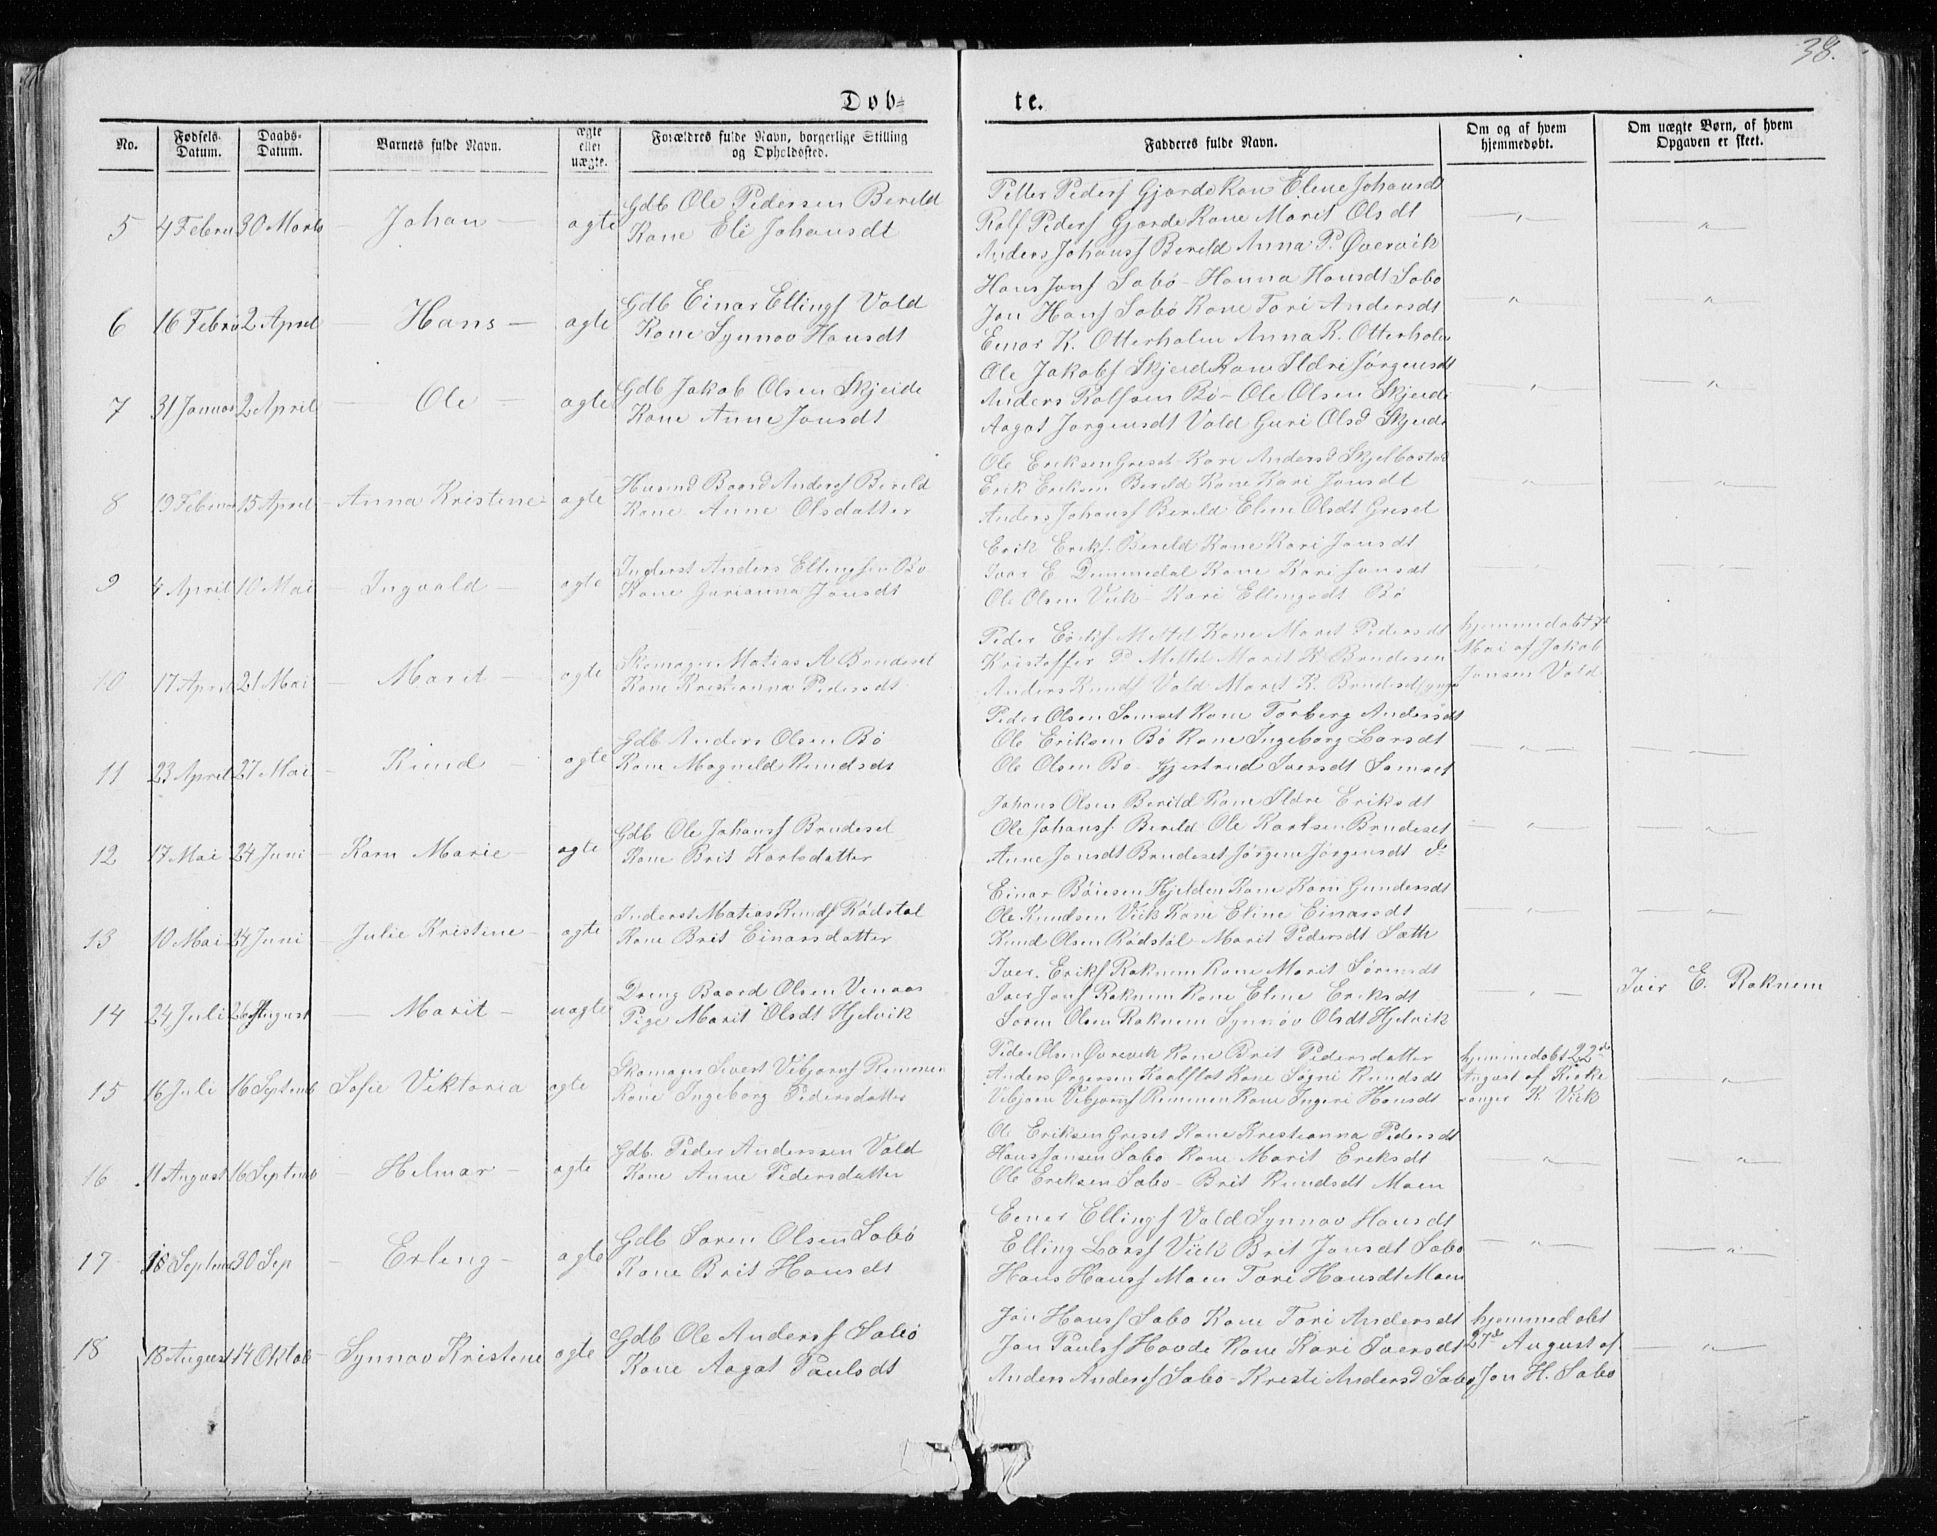 38.
Døb=
te.
No.
Fødsels-
Datum.
Daabs-
Datum.
Barnets fulde Navn.
ægte
eller
uægte.
Forældres fulde Navn, borgerlige Stilling
og Opholdssted.
Fadderes fulde Navn.
Om og af hvem
hjemmedøbt.
Om uægte Børn, af hvem
Opgaven er skeet.
5 4 Febru 30 Marts - Johan - ægte
Gdb Ole Pedersen Berild
Kone Eli Johansdt
Petter Peders Gjørde Kone Elene Johansdt
Rolf Peders Gjørde Kone Marit Olsdt
Anders Johans Berild Anna P. Øvervik
6 16 Febru 2 April - Hans - ægte
Gdb Einar Ellings Vold
Kone Synnøv Hansdt
Hans Jons Sæbø - Hanna Hansdt Sæbø
Jon Hans Sæbø Kone Tori Andersdt
Einar K. Otterholm Anna K. Otterholm
7 31 Januar 2 April - Ole - ægte
Gdb Jakob Olsen Skjeide
Kone Anne Jonsdt
Ole Jakobs Skjeide Kone Ildri Jørgensdt
Anders Rolfsen Bø - Ole Olsen Skjeide
Aagot Jørgensdt Vold Guri Olsd Skjeide
8 19 Februar 15 April - Anna Kristine - ægte
Husmd Baard Anders Berild
Kone Anne Olsdatter
Ole Eriksen Greset - Kari Andersd Skjelbostad
Erik Eriksen Berild Kone Kari Jonsdt
Anders Johans Berild Elene Olsdt Greset
9 4 April 10 Mai - Ingvald - ægte
Inderst Anders Ellingsen Bø
Kone Gurianna Jonsdt
Erik Eriks. Berild Kone Kari Jonsdt
Ivar E. Dummedal Kone Kari Jonsdt
Ole Olsen Viik - Kari Ellingsdt Bø
10 17 April 21 Mai - Marit - ægte
Skomager Matias A Brudeset
Kone Kristianna Pedersdt
Peder Eriks Mittet Kone Marit Pedersdt
Kristoffer P Mittet Marit K Brudeset
Anders Knuds Vold Marit K. Brudeset yngre
hjemmedøbt 7de
Mai af Jakob
Jonsen Vold
11 23 April 27 Mai - Knud - ægte
Gdb Anders Olsen Bø
Kone Magnild Knudsdt
Peder Olsen Samset Kone Torberg Andersdt
Ole Eriksen Bø Kone Ingeborg Larsdt
Ole Olsen Bø - Gjertrud Iversdt Samset
12 17 Mai 24 Juni - Karn Marie - ægte
Gdb Ole Johans Brudeset
Kone Brit Karlsdatter
Johans Olsen Berild Kone Ildre Eriksdt
Ole Johans. Berild Ole Karlsen Brudeset
Anne Jonsdt Brudeset Jørgine Jørgensdt do
13 10 Mai 24 Juni - Julie Kristine - ægte
Inderst Matias Knuds Rødstøl
Kone Brit Einarsdatter
Einar Bøiesen Hjelden Kone Karn Gundersdt
Ole Knudsen Viik Kone Eline Einarsdt
Knud Olsen Rødstøl Marit Pedersdt Sæth
14 24 Juli 26 August - Marit - uægte
Dreng Baard Olsen Venaas
Pige Marit Olsdt Hjelvik
Iver. Eriks Raknem Kone Marit Sørensdt
Iver Jons Raknem Kone Elene Eriksdt
Søren Olsen Raknem Synnøv Olsdt Hjelvik
Iver E. Raknem
15 16 Juli 16 Septemb Sofie Viktoria ægte
Skomager Sivert Vibjørns Remmen
Kone Ingeborg Pedersdatter
Peder Olsen Øvrevik Kone Brit Pedersdatter
Anders Ørgersen Kaalflot Kone Søgni Knudsdt
Vibjørn Vibjørns Remmen Kone Ingeri Hansdt
hjemmedøbt 22de
August af Kirke
sanger K. Viik
16 11 August 16 Septemb - Helmar - ægte
Gdb. Peder Anderssen Vold
Kone Anne Pedersdatter
Ole Eriksen Greset Kone Kristianna Pedersdt
Hans Jonsen Sæbø Kone Marit Eriksdt
Ole Eriksen Sæbø - Brit Knudsdt Moen
17 18 Septemb 30 Sep - Erling - ægte
Gdb Søren Olsen Sæbø
Kone Brit Hansdt
Einer Ellings Vold Synnøv Hansdt
Elling Larss Viik Brit Jonsdt Sæbø
Hans Hanss Moen Tori Hansdt Moen
18 18 August 14 Oktob - Synnøv Kristine ægte
Gdb Ole Anderss Sæbø
Kone Aagot Paulsdt
Jon Hanss Sæbø Kone Tori Andersdt
Jon Paulss Hovde Kone Kari Iversdt
Anders Anderss Sæbø - Kristi Andersd Sæbø
hjemmedøbt
27de August af
Jon H. Sæbø